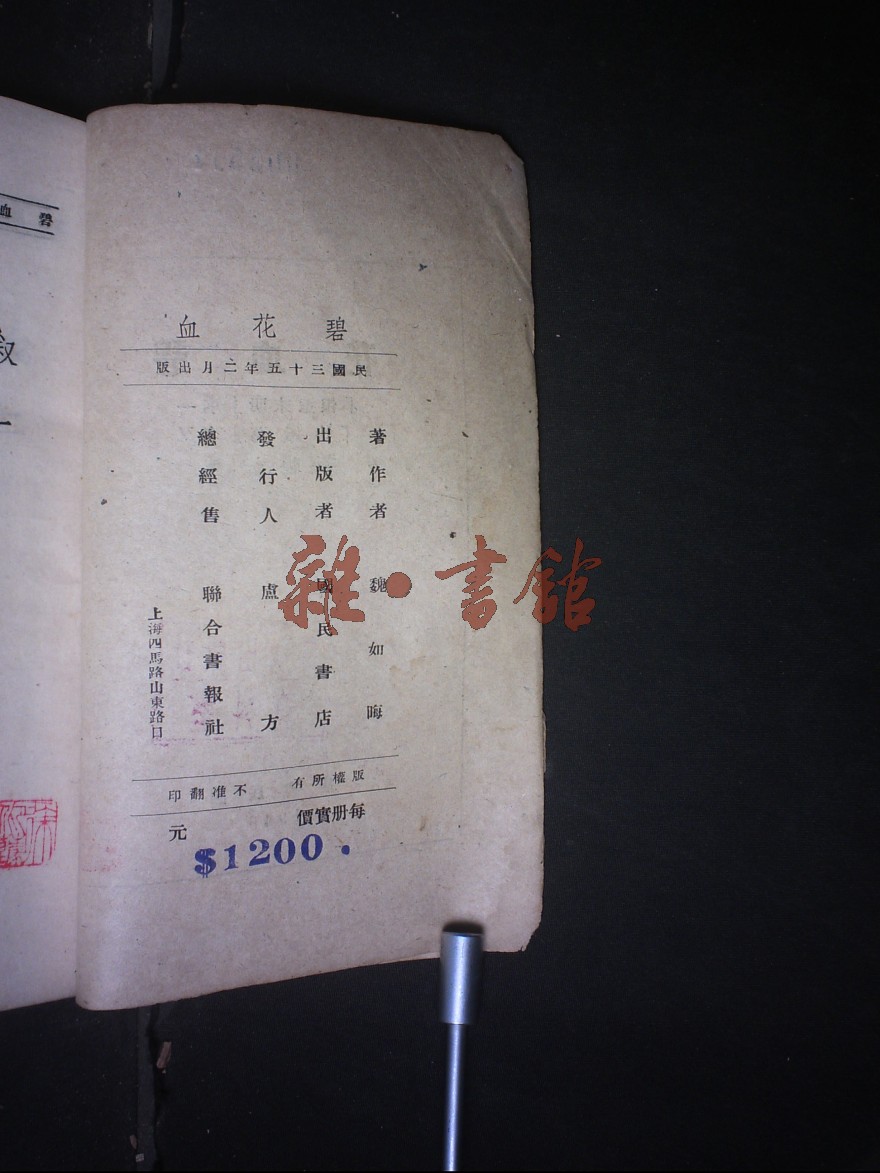 碧血
碧花血
民國三十五年二月出版
著作者 魏如晦
出版者 國民書店
發行人 盧方
總經售 聯合書報社
上海四馬路山東路口
版權所有 不准翻印
每册實價 元
$1200.
雜·書館